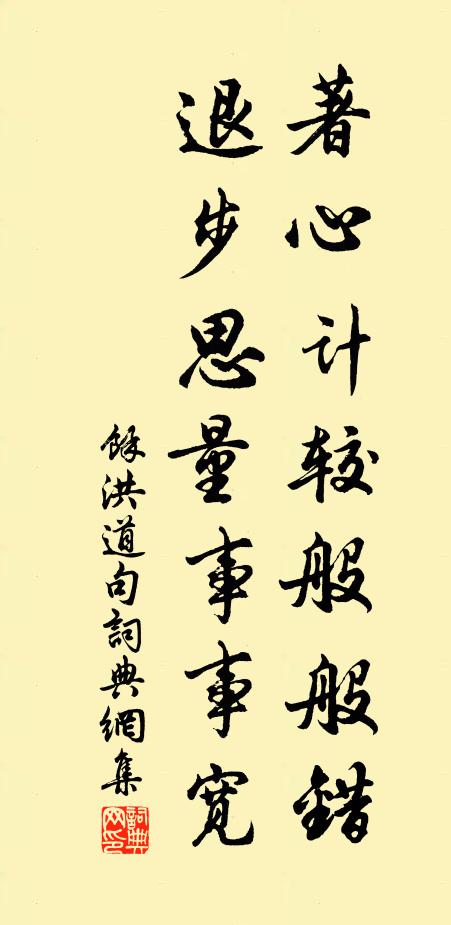 著心计较般般錯
退步思量事事寬
餘洪道句詞典網集
詞典
网印